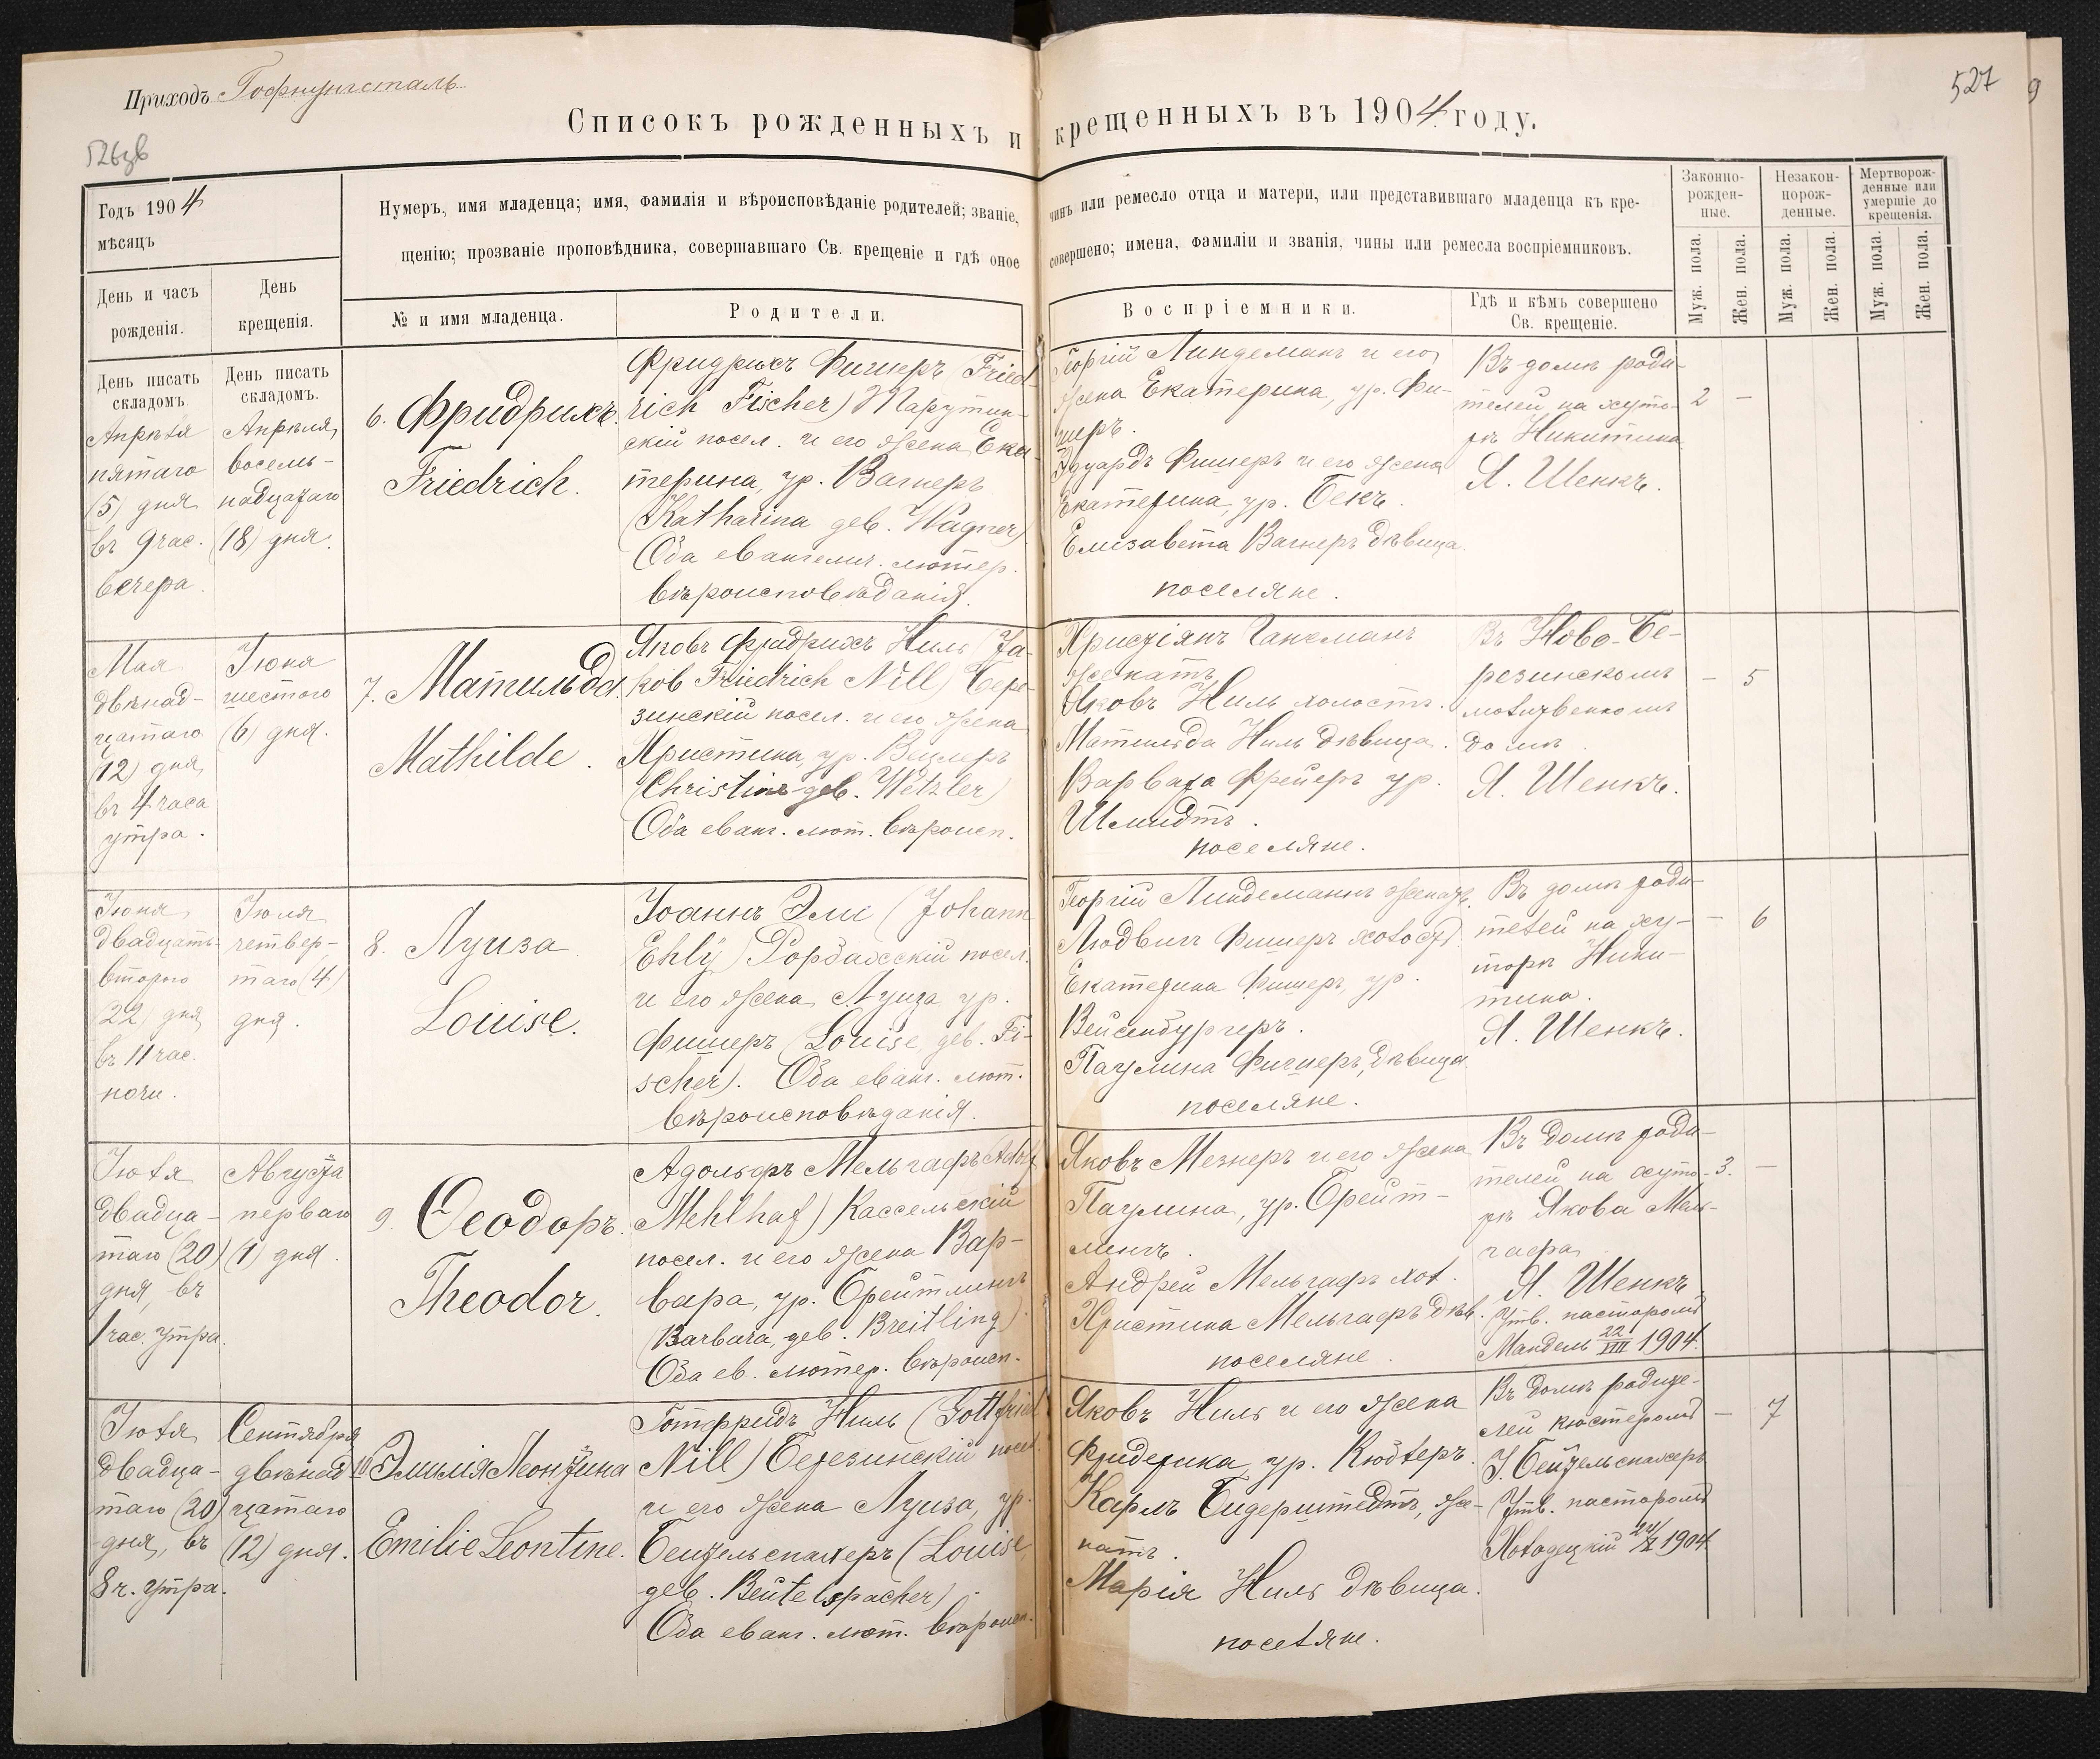 Приходъ Гофнунгсталь
527
9
526 зв
Списокъ рожденныхъ и крещенныхъ въ 1904 году.
Годъ 1904
мѣсяцъ
День и часъ
рожденія.
День
крещенія.
Нумеръ, имя младенца; имя, фамилія и вѣроисповѣданіе родителей; званіе, чинъ или ремесло отца и матери, или представившаго младенца къ кре-
щенію; прозваніе проповѣдника, совершавшаго Св. крещеніе и гдѣ оное совершено; имена, фамиліи и званія, чины или ремесла воспріемниковъ.
№ и имя младенца.
Родители.
Воспріемники.
Гдѣ и кѣмъ совершено
Св. крещеніе.
Законно-
рожден-
ные.
Незакон-
норож-
денные.
Мертворож-
денные или
умершіе до
крещенія.
Муж. пола.
Жен. пола.
Муж. пола.
Жен. пола.
Муж. пола.
Жен. пола.
День писать
складомъ.
Апрѣля
пятаго
(5) дня
въ 9 час.
вечера.
День писать
складомъ.
Апрѣля,
восемь-
надцатаго
(18) дня.
6. Фридрихъ.
Friedrich.
Фридрихъ Фишеръ (Fried-
rich Fischer) Тарутин-
скій посел. и его жена Ека-
терина, ур. Вагнеръ
(Katharina geb. Wagner)
Оба евангелич. лютер.
вѣроисповѣданія.
Георгій Линдеманъ и его
жена Екатерина, ур. Фи-
шеръ.
Эдуардъ Фишеръ и его жена
Екатерина, ур. Бекъ.
Елизавета Вагнеръ дѣвица.
поселяне.
Въ домѣ роди-
телей на хуто-
рѣ Никитина
Я. Шенкъ.
2 -
Мая
двѣнад-
цатаго
(12) дня,
въ 4 часа
утра.
Іюня
шестого
(6) дня.
7. Матильда.
Mathilde.
Яковъ Фридрихъ Ниль (Ja-
kob Friedrich Nill) Бере-
зинскій посел. и его жена
Христина, ур. Вецлеръ
(Christine geb. Wetzler)
Оба еванг. лют. вѣроисп.
Христіянъ Гангманъ
женатъ
Яковъ Ниль холостъ.
Матильда Ниль дѣвица.
Варвара Фрейеръ ур.
Шмидтъ.
поселяне.
Въ Ново-Бе-
резинскомъ
молитвенномъ
домѣ.
Я. Шенкъ.
- 5
Іюня
двадцать-
второго
(22) дня
въ 11 час.
ночи.
Іюля
четвер-
таго (4)
дня.
8. Луиза
Louise.
Іоаннъ Эли (Johann
Ehly) Гордаесскій посел.
и его жена Луиза ур.
Фишеръ (Louise, geb. Fi-
scher). Оба еванг. лют.
вѣроисповѣданія.
Георгій Линдеманнъ женатъ.
Людвигъ Фишеръ холостъ.
Екатерина Фишеръ, ур.
Вейсенбургеръ.
Паулина Фишеръ, дѣвица
поселяне.
Въ домѣ роди-
телей на ху-
торѣ Ники-
тина.
Я. Шенкъ.
- 6
Іюля
двадца-
таго (20)
дня, въ
1 час. утра.
Августа
перваго
(1) дня.
9. Ѳеодоръ.
Theodor.
Адольфъ Мельгафъ (Adolf
Mehlhaf) Кассельскій
посел. и его жена Вар-
вара, ур. Брейтлингъ
(Barbara, geb. Breitling)
Оба ев. лютер. вѣроисп.
Яковъ Мезнеръ и его жена
Паулина, ур. Брейт-
лингъ.
Андрей Мельгафъ хол.
Христина Мельгафъ дѣв.
поселяне.
Въ домѣ роди-
телей на хуто-
рѣ Якова Мель-
гафа
Я. Шенкъ
Утв. пасторомъ
Мандель 22/VIII 1904.
3. -
Іюля
двадца-
таго (20)
дня, въ
8 ч. утра.
Сентября
двѣнад-
цатаго
(12) дня.
10. Эмилія Леонтина
Emilie Leontine.
Готфридъ Ниль (Gottfried
Nill) Березинскій посел.
и его жена Луиза, ур.
Бейтельспахеръ (Louise,
geb. Beutelspacher)
Оба еванг. лют. вѣроисп.
Яковъ Ниль и его жена
Фридерика, ур. Кюстеръ.
Карлъ Бидерштедтъ, же-
натъ.
Марія Ниль дѣвица.
поселяне.
Въ домѣ родите-
лей кюстеромъ
І. Бейтельспахеръ
Утв. пасторомъ
1904
- 7